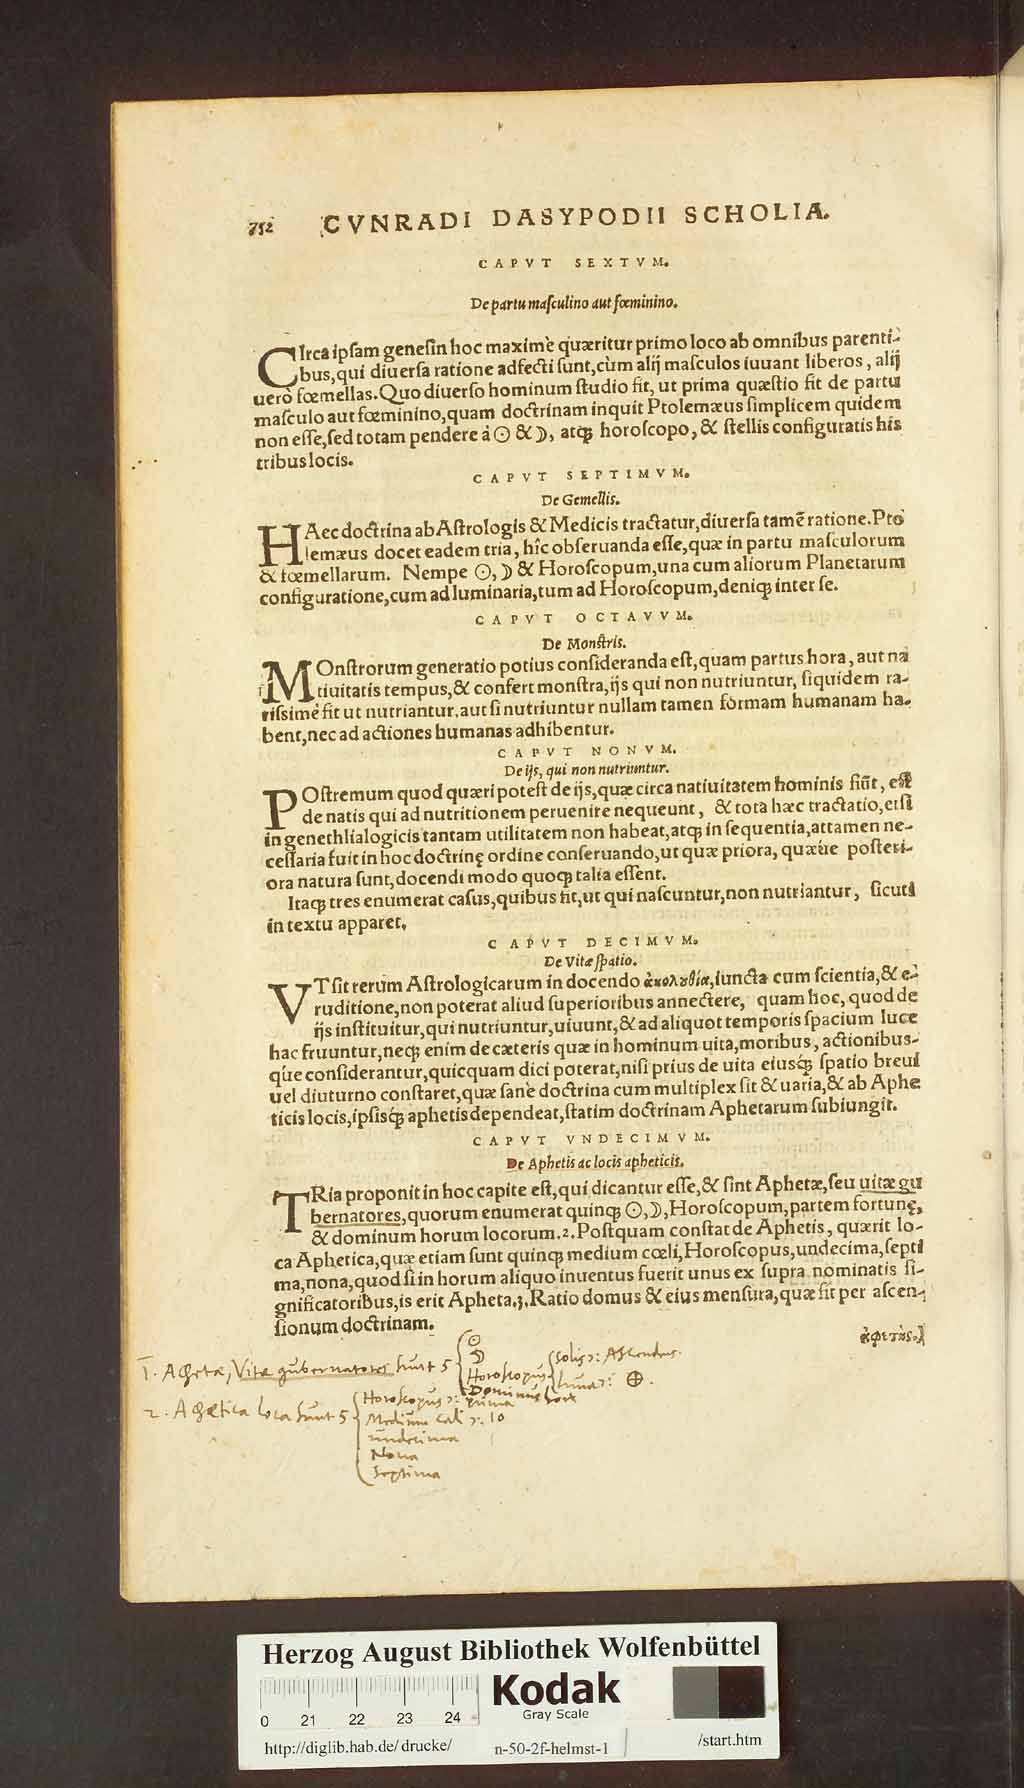 752 CVNRADI DASYPODII SCHOLIA.
CAPVT SEXTVM.
De partu maſculino aut fœminino.
CIrca ipſam geneſin hoc maximè quæritur primo loco ab omnibus parenti-
bus, qui diuerſa ratione adfecti ſunt, cùm alij maſculos iuuant liberos, alij
uerò fœmellas. Quo diuerſo hominum ſtudio fit, ut prima quæſtio fit de partu
maſculo aut fœminino, quam doctrinam inquit Ptolemæus ſimplicem quidem
non eſſe, ſed totam pendere à ☉ & ☽, atq; horoſcopo, & ſtellis configuratis his
tribus locis.
CAPVT SEPTIMVM.
De Gemellis.
HAec doctrina ab Aſtrologis & Medicis tractatur, diuerſa tamẽ ratione. Pto
lemæus docet eadem tria, hîc obſeruanda eſſe, quæ in partu maſculorum
& fœmellarum. Nempe ☉, ☽ & Horoſcopum, una cum aliorum Planetarum
configuratione, cum ad luminaria, tum ad Horoſcopum, deniq; inter ſe.
CAPVT OCTAVVM.
De Monſtris.
MOnſtrorum generatio potius conſideranda eſt, quam partus hora, aut na
tiuitatis tempus, & confert monſtra, ijs qui non nutriuntur, ſiquidem ra-
riſsimè fit ut nutriantur. aut ſi nutriuntur nullam tamen formam humanam ha-
bent, nec ad actiones humanas adhibentur.
CAPVT NONVM.
De ijs, qui non nutriuntur.
POſtremum quod quæri poteſt de ijs, quæ circa natiuitatem hominis fiũt, eſt
de natis qui ad nutritionem peruenire nequeunt, & tota hæc tractatio, etſi
in genethlialogicis tantam utilitatem non habeat, atq; in ſequentia, attamen ne-
ceſſaria fuit in hoc doctrinę ordine conſeruando, ut quæ priora, quæue poſteri-
ora natura ſunt, docendi modo quoq; talia eſſent.
Itaq; tres enumerat caſus, quibus fit, ut qui naſcuntur, non nutriantur, ſicuti
in textu apparet.
CAPVT DECIMVM.
De Vitæ ſpatio.
VT ſit rerum Aſtrologicarum in docendo ἀκολυθία, iuncta cum ſcientia, & e-
ruditione, non poterat aliud ſuperioribus annectere, quam hoc, quod de
ijs inſtituitur, qui nutriuntur, uiuunt, & ad aliquot temporis ſpacium luce
hac fruuntur, neq; enim de cæteris quæ in hominum uita, moribus, actionibus-
que conſiderantur, quicquam dici poterat, niſi prius de uita eiusq; ſpatio breui
uel diuturno conſtaret, quæ ſanè doctrina cum multiplex ſit & uaria, & ab Aphe
ticis locis, ipſisq; aphetis dependeat, ſtatim doctrinam Aphetarum ſubiungit.
CAPVT VNDECIMVM.
De Aphetis ac locis apheticis.
TRia proponit in hoc capite eſt, qui dicantur eſſe, & ſint Aphetæ, ſeu uitæ gu
bernatores, quorum enumerat quinq; ☉, ☽, Horoſcopum, partem fortunę,
& dominum horum locorum. 2. Poſtquam conſtat de Aphetis, quærit lo-
ca Aphetica, quæ etiam ſunt quinq; medium cœli, Horoſcopus, undecima, ſepti
ma, nona, quod ſi in horum aliquo inuentus fuerit unus ex ſupra nominatis ſi-
gnificatoribus, is erit Apheta. 3. Ratio domus & eius menſura, quæ fit per aſcen-
ſionum doctrinam.
ἀφετὰς.
☉
☽
1. Vitæ gubernatores sunt 5 Horoscopus Solis: Ascendens.
Lunæ: ⊕.
Dominus
2. loca sunt 5 Horoscopus prima
Medium cœli 10
undecima
Nona
Septima
Herzog August Bibliothek Wolfenbüttel
Kodak
Gray Scale
0 21 22 23 24
http://diglib.hab.de/drucke/ n-50-2f-helmst-1 /start.htm